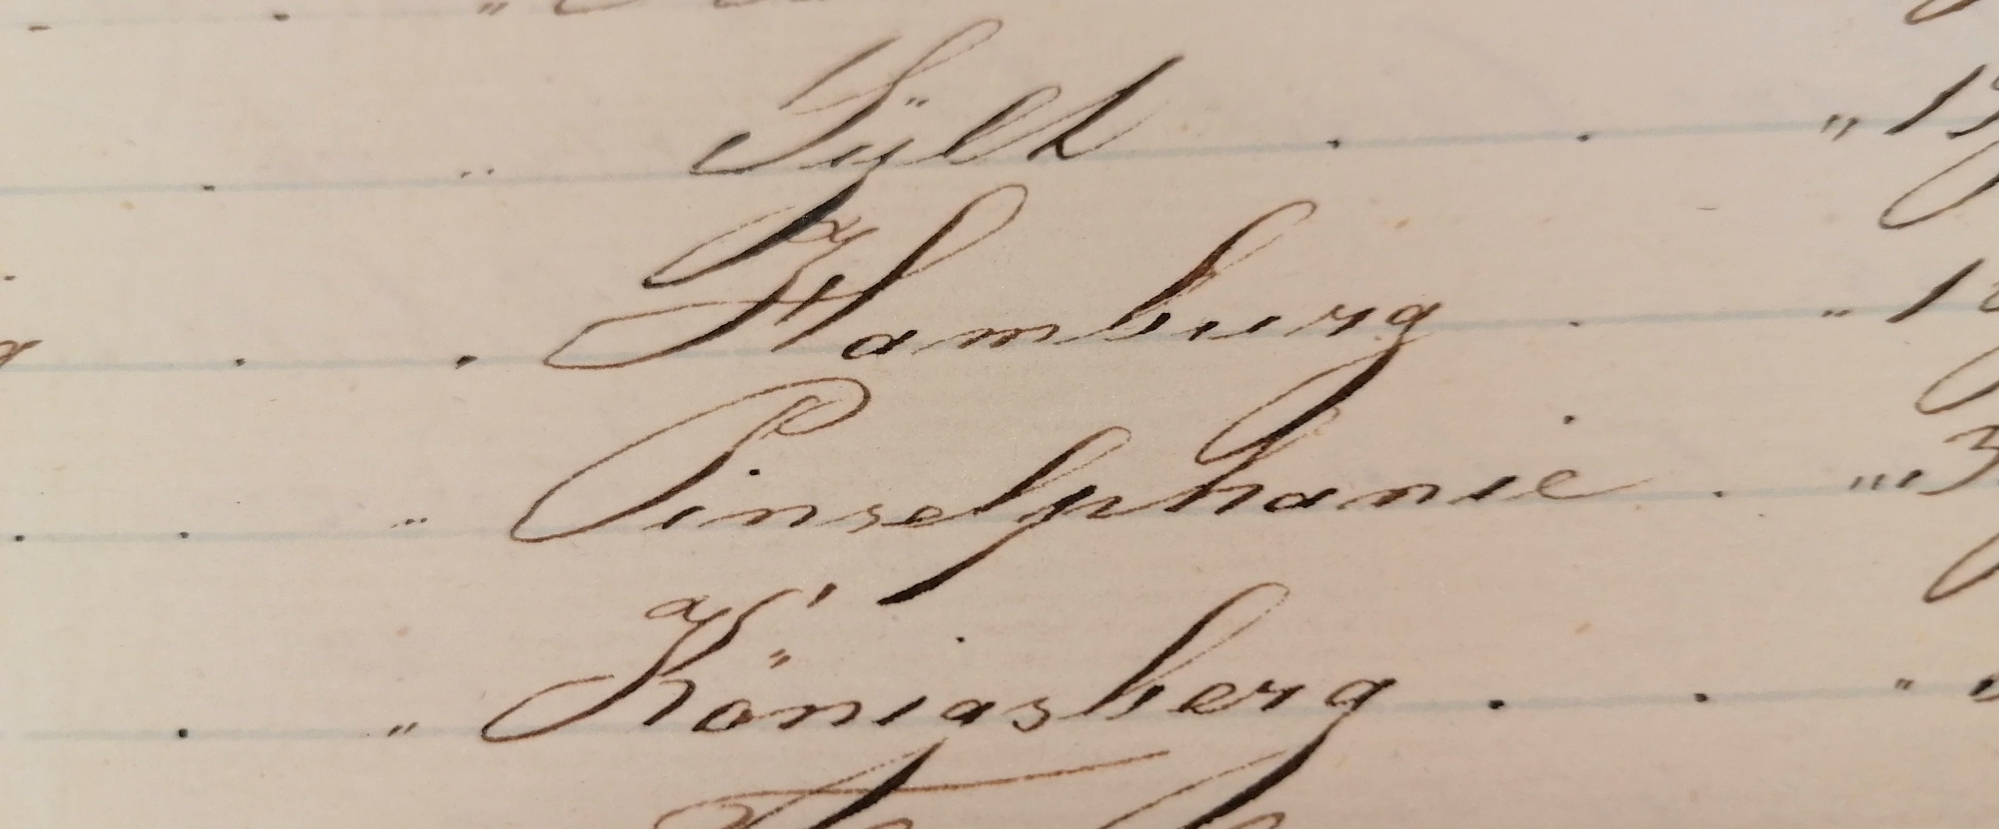 „ Sÿlt . . „ 19
. . Hamburg . „ 1
. . „ Pinselphanie . „„ 3
. „ Königsberg . . „